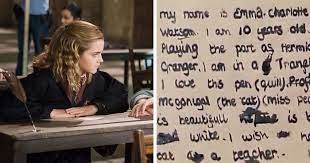 my name is Emma. Charlotte
Watson. I am 10 years old
Playing the part as
Granger. I am in a
I love this pen (quill). Prof
Mcgonigal (the cat) (miss pe
is beautifull
white. I wish
cat as a teacher..